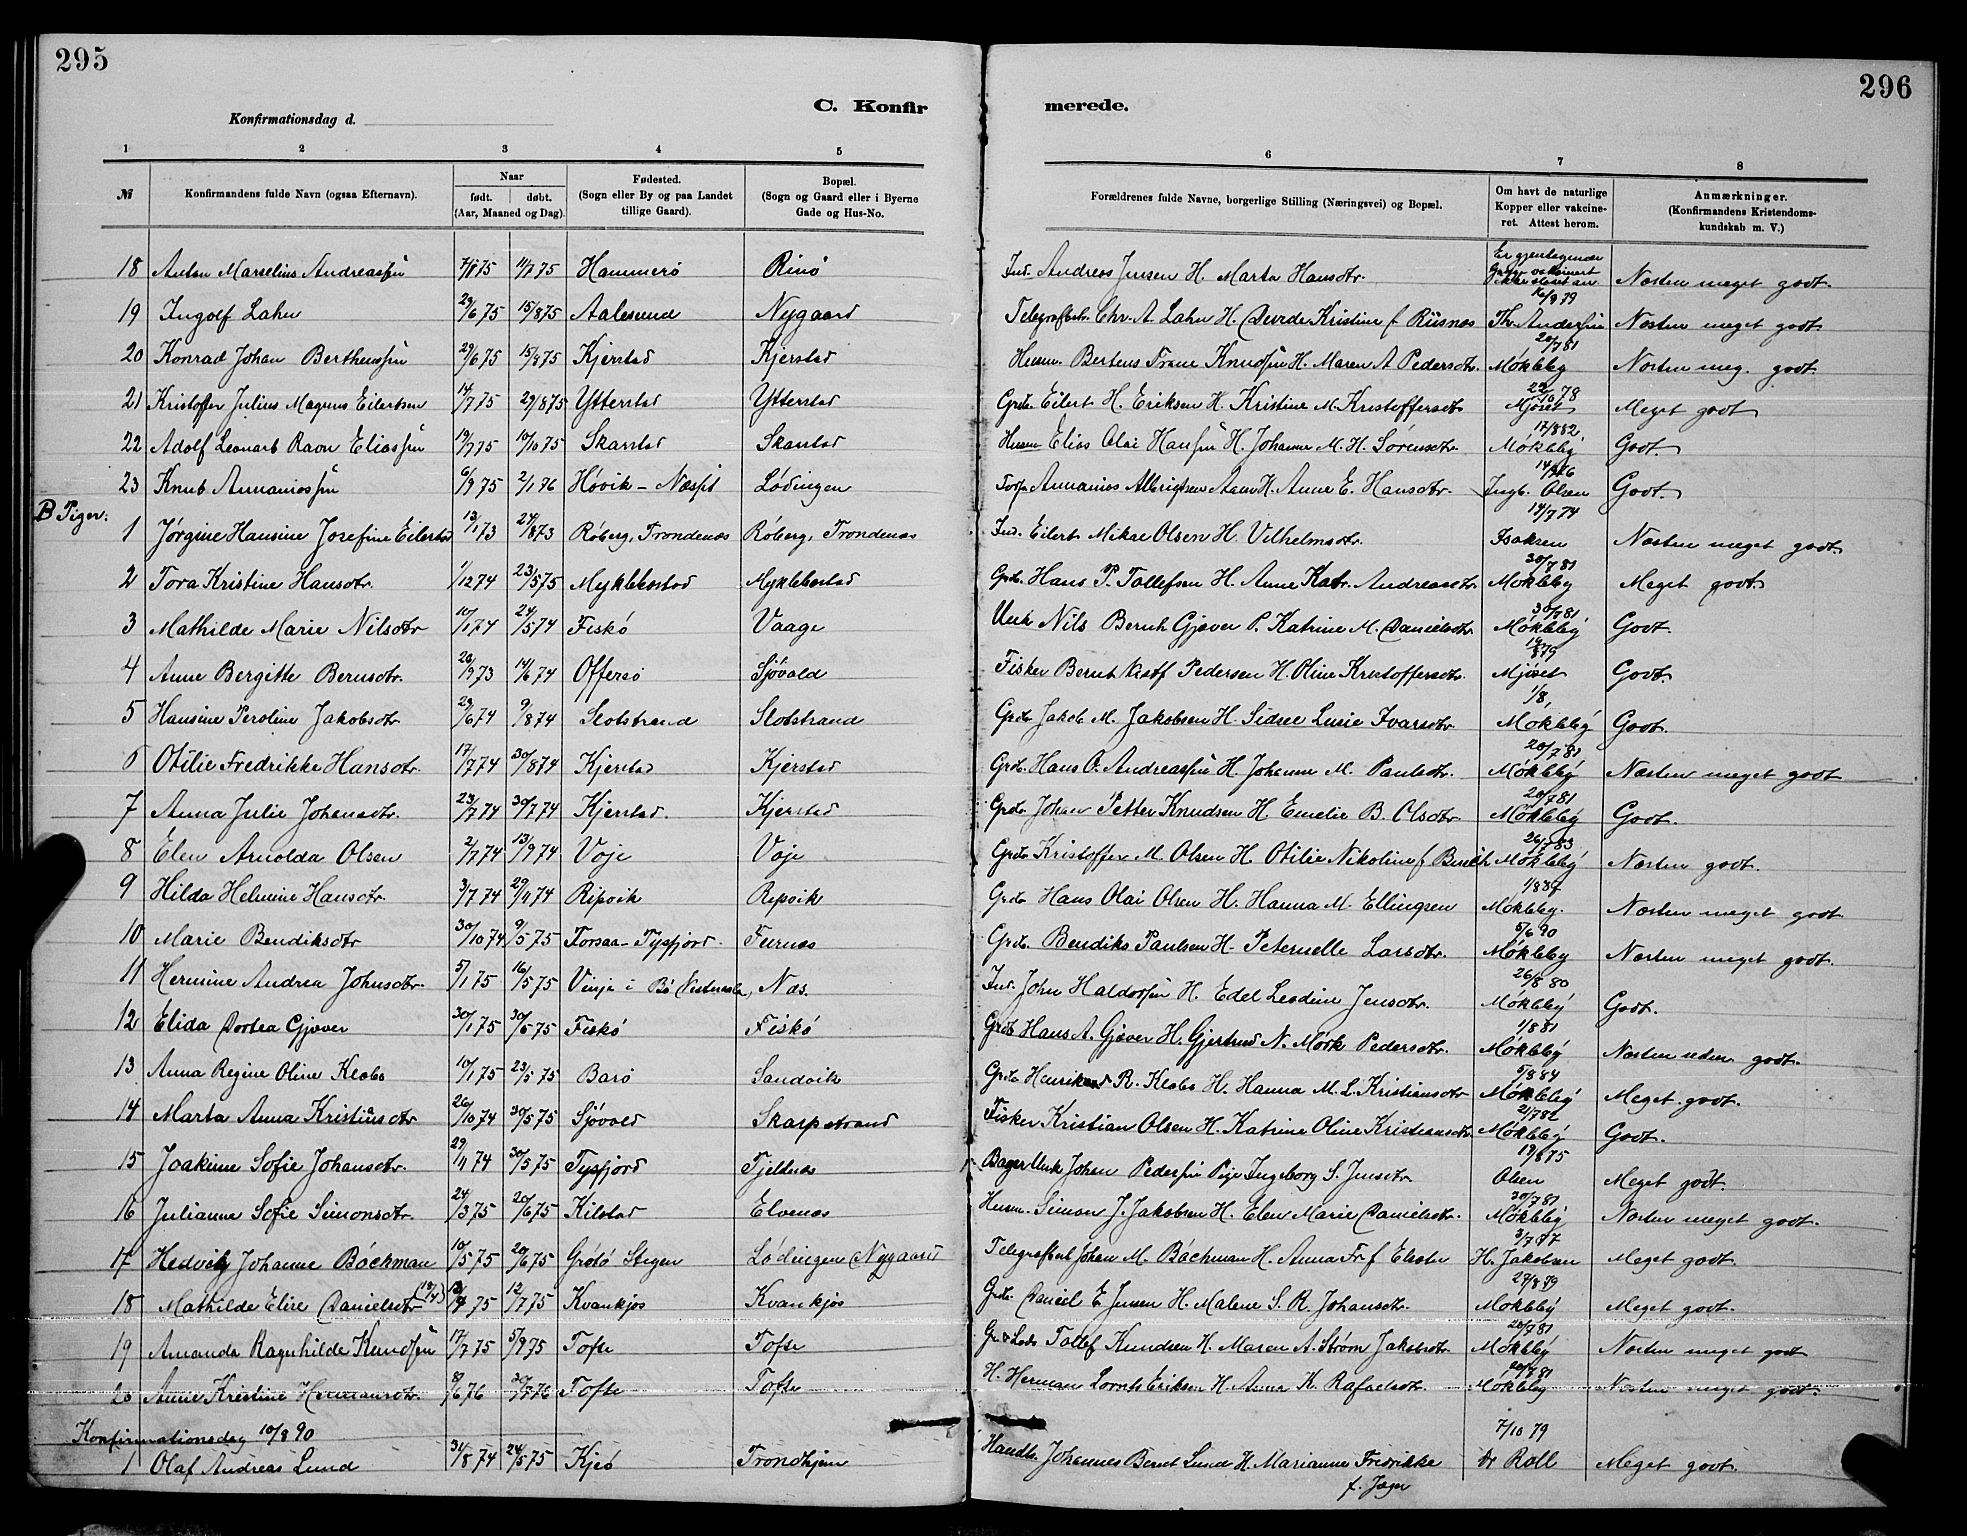 295
296
C. Konfir
merede.
Konfirmationsdag d.
1 2 3 4 5 6 7 8
№
Konfirmandens fulde Navn (ogsaa Efternavn).
Naar
født. døbt.
(Aar, Maaned og Dag).
Fødested.
(Sogn eller By og paa Landet
tillige Gaard).
Bopæl.
(Sogn og Gaard eller i Byerne
Gade og Hus-No.
Forældrenes fulde Navne, borgerlige Stilling (Næringsvei) og Bopæl.
Om havt de naturlige
Kopper eller vakcine-
ret. Attest herom.
Anmærkninger.
(Konfirmandens Kristendoms-
kundskab m. V.)
18 Anton Marselius Andreassen 11/7 75 Hammerø Rinø Ind. Andreas Jensen H. Marta Hansdtr. Næsten meget godt.
19 Ingolf Lahn 29/6 75 15/8 75 Aalesund Nygaard Telegrafbest. Chr. A. Lahn H. Kristine f. Riisnæs Th. Andersen Næsten meget godt
20 Konrad Johan Berthenssen 29/6 75 15/8 75 Kjerstad Kjerstad Husm. Bertens Knudsen H. Maren A Pedersdtr. 20/7 81 Møkleby Næsten meg. godt
21 Kristoffer Julius Magnus Eilertsen 14/7 75 29/8 75 Ytterstad Ytterstad Grdb. Eilert H. Eriksen H. Kristine M. Kristoffersdtr 22/10 78 Mjøset Meget godt
22 Adolf Leonard Ravn Eliassen 19/7 75 10/10 75 Skanstad Skanstad Husm Elias Olai Hansen H. Johanna M. H. Sørensdtr. 17/8 82 Møkleby Godt.
23 Knud Annaniassen 6/9 75 2/1 76 Høvik - Lødingen Annanias Albrigtsen H. Anne E. Hansdtr. Ingb. Olsen Godt.
B Piger.
1 Jørgine Hansine Josefine Eilertsd 12/1 73 24/8 73 Røberg, Trondenæs Røberg, Trondenæs Ind. Eilert Mikal Olsen H. Vilhelmsdtr. 14/7 74 Isaksen Næsten meget godt
2 Tora Kristine Hansdtr. 1/12 74 23/5 75 Myklebostad Myklebostad Grdb. Hans P. Tollefsen H. Anne Katr. Andreasdtr 30/7 81 Møkleby Meget godt
3 Mathilde Marie Nilsdtr 10/1 74 24/5 74 Fiskø Vaage Unk Nils Bernh Gjæver P. Katrine M. Danielsdtr. 30/7 81 Møkleby Godt.
4 Anne Bergitte Berntsdtr. 20/9 73 14/6 74 Offersø Sjøvold Fisker Bernt Pedersen H. Oline Kristoffersdtr. Mjøset Godt.
5 Hansine Peroline Jakobsdtr 29/6 74 9/8 74 Slotstrand Slotstrand Grdb Jakob M. Jakobsen H. Sidsel Lusie Ivarsdtr. 1/8, Møkleby Godt.
6 Otilie Fredrikke Hansdtr. 17/7 74 30/8 74 Kjerstad Kjerstad Grdb. Hans O. Andreassen H. Johanna M. Paulsdtr. 20/7 81 Møkleby Næsten meget godt
7 Anna Julie Johansdtr. 23/7 74 30/7 74 Kjerstad. Kjerstad Grdb Johan Petter Knudsen H. Emelie B. Olsdtr. 20/7 81 Møkleby Godt.
8 Elen Arnolda Olsen 2/7 74 13/9 74 Voje Voje Grdb Kristoffer M. Olsen H. Otilie Nikoline f. 26/7 83 Møkleby Næsten godt.
9 Hilda Helmine Hansdtr. 3/7 74 29/11 74 Ripvik Ripvik Grdb Hans Olai Olsen H. Hanna M. Ellingsen Møkleby. Næsten meget godt
10 Marie Bendiksdtr 30/10 74 9/5 75 Forsaa - Tysfjord. Furnæs Grdb. Bendiks Paulsen H. Peternelle Larsdtr. 5/6 90 Møkleby Næsten meget godt.
11 Hermine Andrea Johnsdtr. 5/1 75 16/5 75 Vinje i Bø Næs. Ind. John Haldorsen H. Edel Jensdtr. 26/8 80 Møkleby Godt.
12 Elida Dortea Gjæver 30/1 75 30/5 75 Fiskø Fiskø Grdb Hans A. Gjæver H. Gjertrud N. Mørk Pedersdtr. 1/8 81 Møkleby Næsten godt.
13 Anna Regine Oline Klæbo 10/1 75 23/5 75 Barø Sandvik Grdb R. Klæbo H. Hanna M. L. Kristiansdtr 5/8 84 Møkleby Meget godt.
14 Marta Anna Kristiansdtr 26/10 74 30/5 75 Sjøvold Skarpstrand Fisker Kristian Olsen H. Katrine Oline Kristiansdtr. 21/7 82 Møkleby Godt.
15 Joakime Sofie Johansdtr. 29/11 74 30/5 75 Tysfjord Tjeldnæs Unk Johan Pedersen Pige Ingeborg S. Jensdtr. 19/8 75 Olsen Meget godt.
16 Julianne Sofie Simonsdtr. 24/3 75 20/6 75 Kilstad Elvenæs Husm. Simon J. Jakobsen H. Elen Marie Danielsdtr. 30/7 81 Møkleby Næsten meget godt.
17 Hedvig Johanne Bøckman 10/5 75 20/6 75 Grøtø Stegen Lødingen (Nygaard Telegrafbest Johan M. Bøchman H. Anna Fr f 3/7 77 H. Jakobsen Meget godt.
18 Mathilde Elise Danielsdtr 12/7 75 Kvankjos Kvankjos Grdb. Daniel E. Jensen H. Malene S. R. Johansdtr. 27/8 79 Møkleby Meget godt.
19 Amanda Ragnhilde Knudsen 17/7 75 5/9 75 Tofte Tofte Tollef Knudsen H. Maren A. Strøm Jakobsdtr. 20/7 81 Møkleby Næsten meget godt
20 Anne Kristine Hermansdtr. 30/8 76 Tofte Tofte H. Herman Lornts Eriksen H. Anna K. Rafaelsdtr. 20/7 81 Møkleby Næsten meget godt.
Konfirmationsdag 10/8 90
1 Olaf Andreas Lund 31/8 74 24/5 75 Kjeø Trondhjem Handlr. Johannes Bernt Lund H. Marianne Fredrikke 7/10 79 Dr Roll Meget godt.
f. Jæger